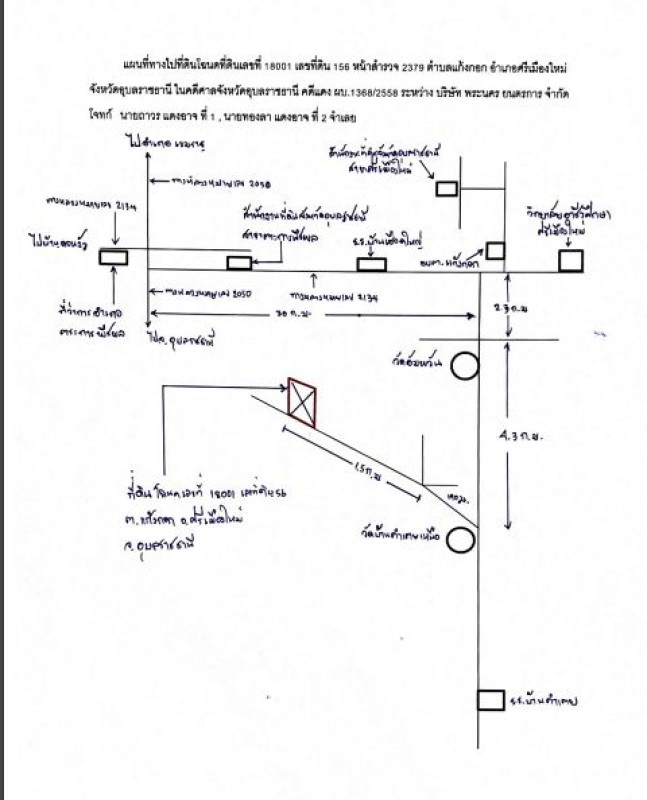 แผนที่ทางไปที่ดินโฉนดที่ดินเลขที่ 18001 เลขที่ดิน 156 หน้าสำรวจ 2379 ตำบลแก้งกอก อำเภอศรีเมืองใหม่
จังหวัดอุบลราชธานี ในคดีศาลจังหวัดอุบลราชธานี คดีแดง ผบ.1368/2558 ระหว่าง บริษัท พระนคร ยนตรการ จำกัด
โจทก์ นายถาวร แดงอาจ ที่ 1 , นายทองลา แดงอาจ ที่ 2 จำเลย
ไปอำเภอ เขมราฐ
ทางหลวงหมายเลข 2050
ทางหลวงหมายเลข 2134
สำนักงานที่ดินจังหวัดอุบลราชธานี
สาขาศรีเมืองใหม่
สำนักงานที่ดินจังหวัดอุบลราชธานี
สาขาตระการพืชผล
ร.ร.บ้าน
อบต.แก้งกอก
วิทยาลัย
ศรีเมืองใหม่
ไปบ้าน
ที่ว่าการอำเภอ
ตระการพืชผล
ทางหลวงหมายเลข 2050
ทางหลวงหมายเลข 2134
30 ก.ม.
2.3 ก.ม.
ไปจ.อุบลราชธานี
4.3 ก.ม.
1.5 ก.ม.
ที่ดินโฉนดเลขที่ 18001 เลขที่ดิน 156
ต.แก้งกอก อ.ศรีเมืองใหม่
จ.อุบลราชธานี
วัดบ้านคำเตยเหนือ
ร.ร.บ้านคำเตย